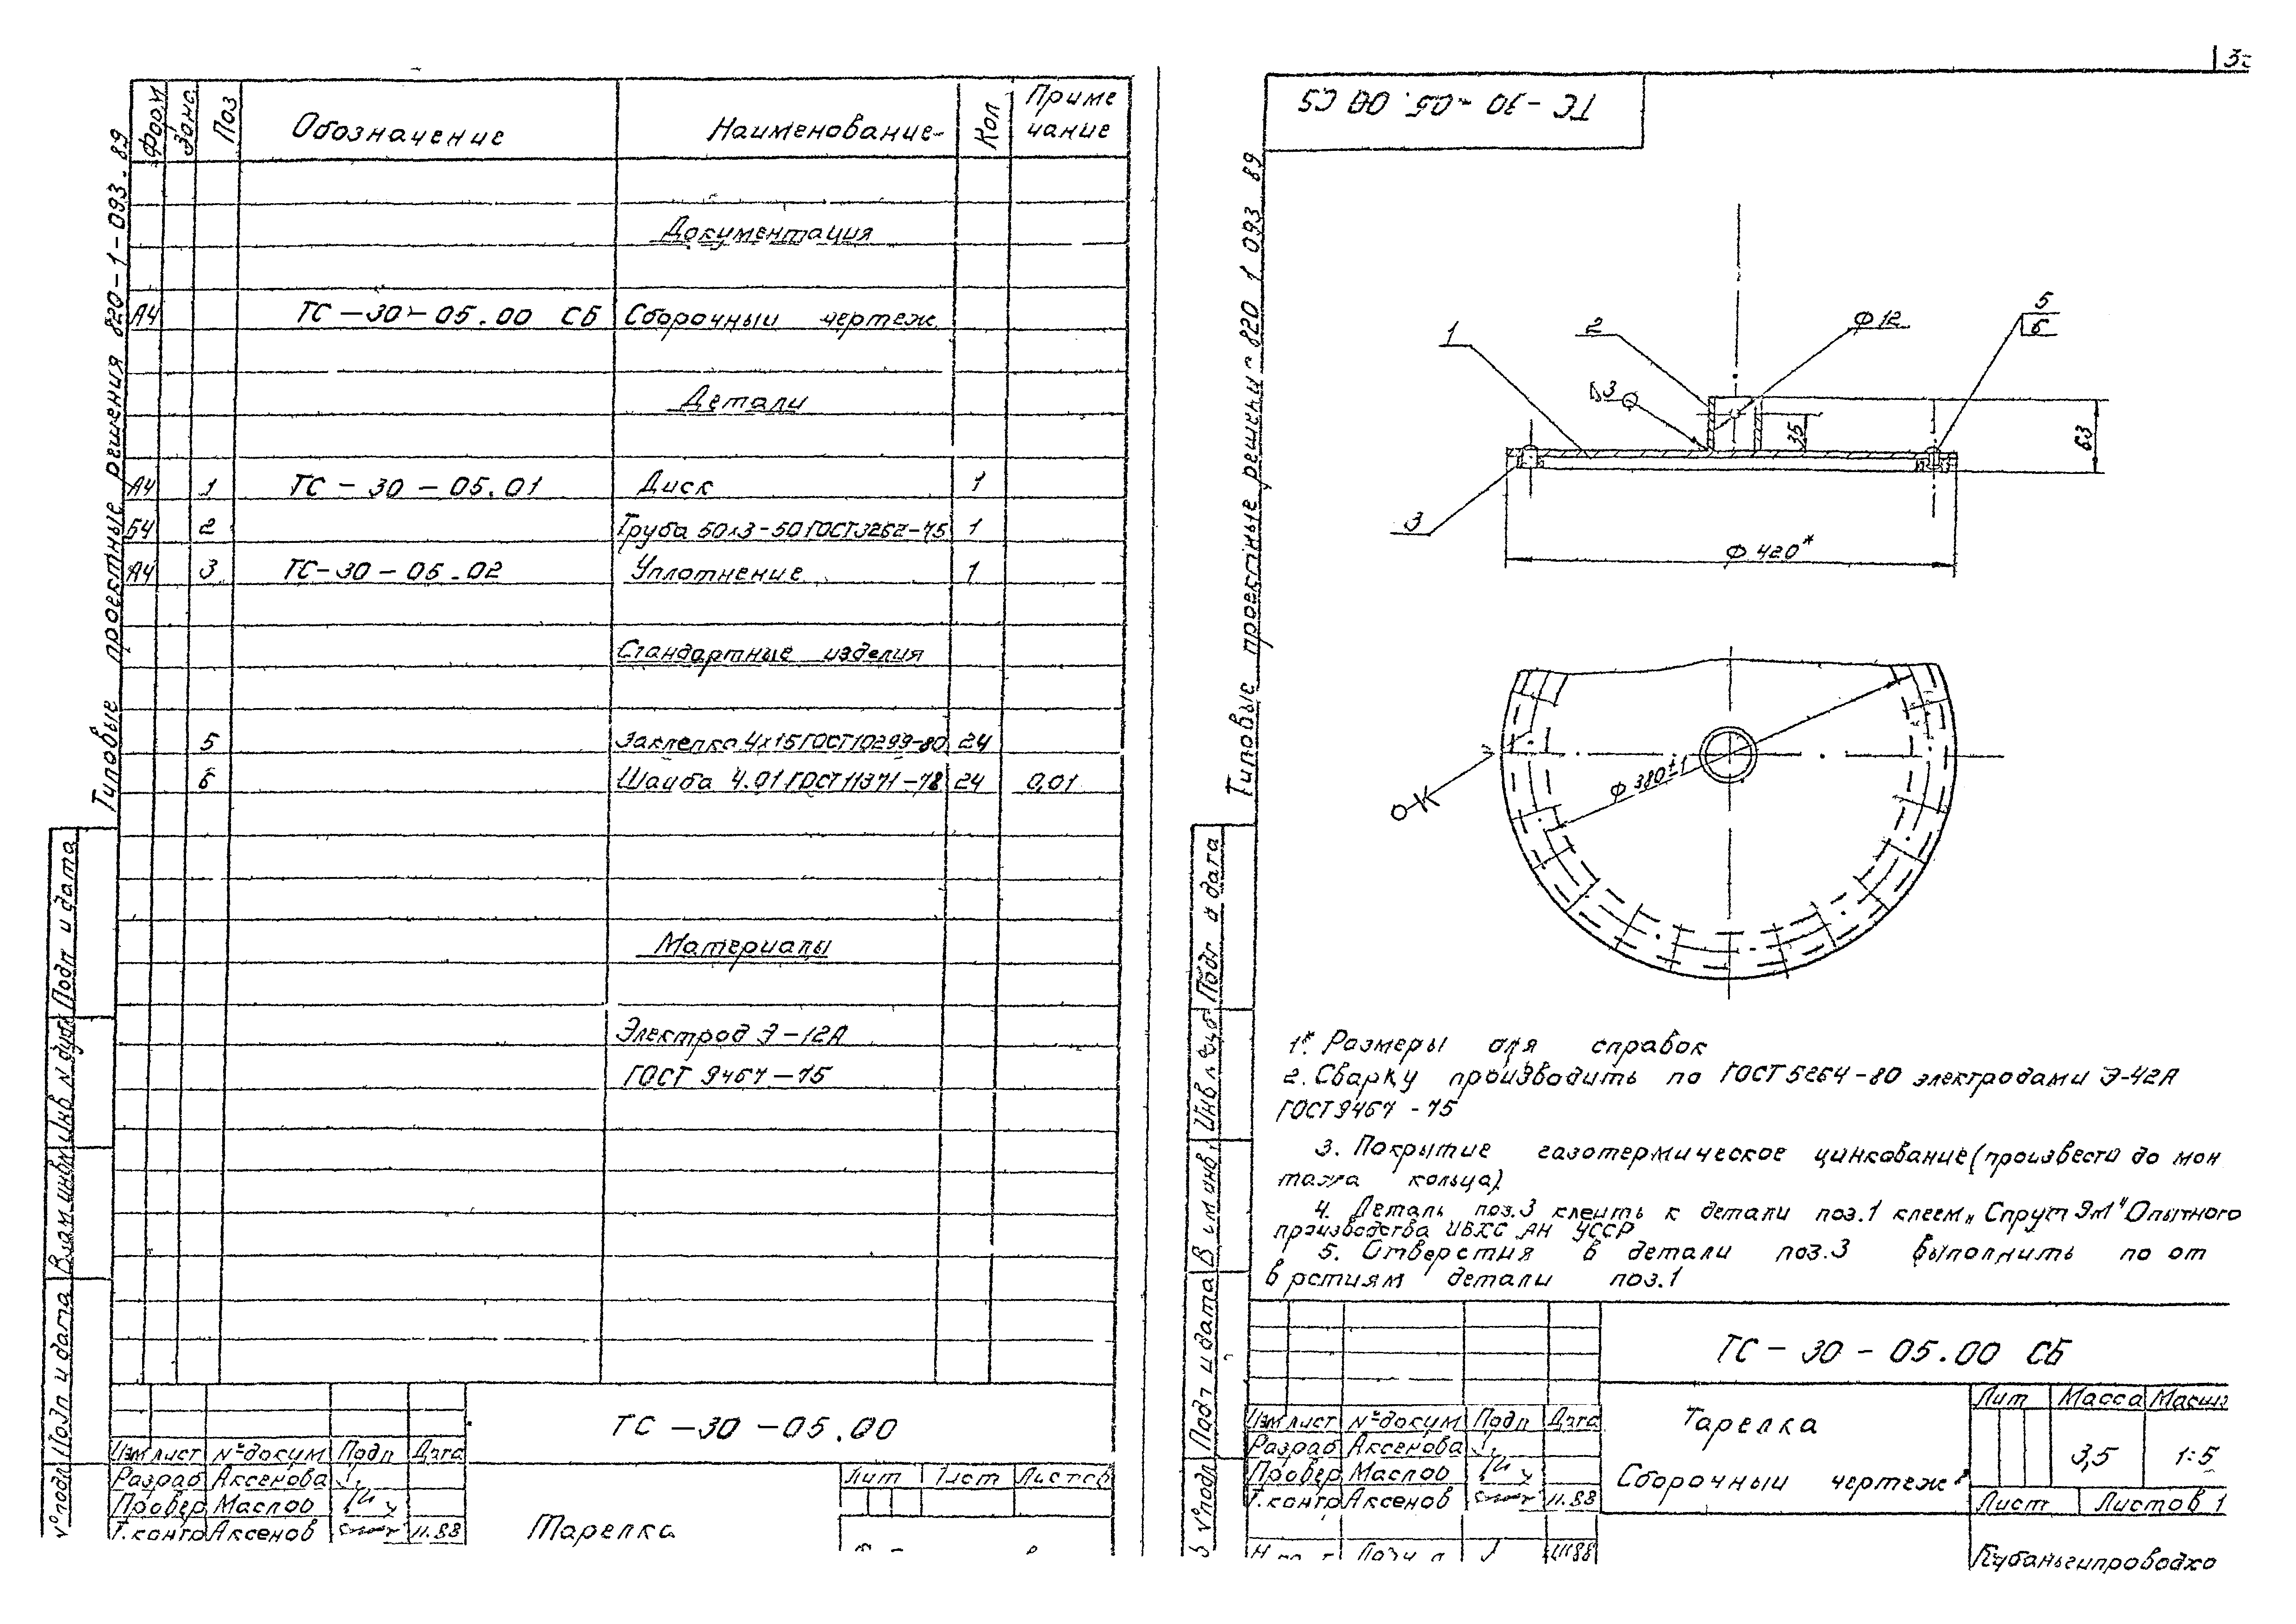 Форм Зонс Поз Обозначение Наименование Кол Приме
чание
Документация
А4 ТС-30-05.00 СБ Сборочный чертеж
Детали
А4 1 ТС-30-05.01 Диск 1
Б4 2 Труба 50х3-50 ГОСТ 3262-75 1
А4 3 ТС-30-05.02 Уплотнение 1
Стандартные изделия
5 Заклепка 4х15 ГОСТ 10299-80 24
6 Шайба 4.01 ГОСТ 11371-78 24 0,01
Материалы
Электрод Э-12А
ГОСТ 9467-75
Типовые проектные решения 820-1-093.89
Подп и дата
Инв N дубл
Взам инв N
Подп и дата
№ подл
ТС-30-05.00
Изм лист № докум Подп Дата
Разраб Аксенова
Провер Маслов
Т.контр Аксенов 11.88
Тарелка
Лит Лист Листов
ТС-30-05.00 СБ
1
2
Ф12
5
6
3
35
63
3
Ф420*
Ф380±1
К
Типовые проектные решени 820 1 093 89
1*. Размеры для справок
2. Сварку производить по ГОСТ 5264-80 электродами Э-42А
ГОСТ 9467-75
3. Покрытие газотермическое цинкование (произвести до мон
тажа кольца)
4. Деталь поз.3 клеить к детали поз.1 клеем „Спрут 9М" Опытного
производства ИВХС АН УССР
5. Отверстия в детали поз.3 выполнить по от
в рстиям детали поз.1
Подп и дата
Подп и дата
№ подл
ТС-30-05.00 СБ
Изм лист № докум Подп Дата
Разраб Аксенова
Провер Маслов
Т.контр Аксенов 11.88
11 88
Тарелка
Сборочный чертеж
Лит Масса Масшт
3,5 1:5
Лист Листов 1
Кубаньгипроводхо